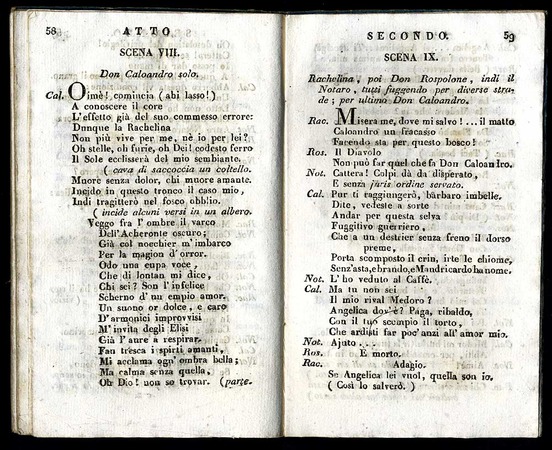 58
ATTO
SCENA VIII.
Don Caloandro solo.
Cal. Oimè! comincia (ahi lasso!)
A conoscere il core
L'effetto già del suo commesso errore:
Dunque la Rachelina
Non più vive per me, nè io per lei?
Oh stelle, oh furie, oh Dei! codesto ferro
Il Sole ecclisserà del mio sembiante.
( cava di saccoccia un coltello.
Muore senza dolor, chi muore amante.
Incido in questo tronco il caso mio,
Indi tragitterò nel fosco obblio.
( incide alcuni versi in un albero.
Veggo fra l'ombre il varco
Dell'Acheronte oscuro;
Già col nocchier m'imbarco
Per la magion d'orror.
Odo una cupa voce,
Che di lontan mi dice,
Chi sei? Son l'infelice
Scherno d'un empio amor.
Un suono or dolce, e caro
D'armonici improvvisi
M'invita degli Elisi
Già l'aure a respirar.
Fan tresca i spirti amanti,
Mi acclama ogn'ombra bella;
Ma calma senza quella,
Oh Dio! non so trovar. (parte.
SECONDO.
59
SCENA IX.
Rachelina, poi Don Rospolone, indi il
Notaro, tutti fuggendo per diverse stra-
de; per ultimo Don Caloandro.
Rac. Misera me, dove mi salvo!... il matto
Caloandro un fracasso
Facendo sta per questo bosco!
Ros. Il Diavolo
Non può far quel che fa Don Caloandro.
Not. Cattera! Colpi dà da disperato,
E senza juris ordine servato.
Cal. Pur ti raggiungerò, bàrbaro imbelle.
Dite, vedeste a sorte
Andar per questa selva
Fuggitivo guerriero,
Che a un destrier senza freno il dorso
preme,
Porta scomposto il crin, irte le chiome,
Senz'asta, e brando, e Mandricardo ha nome.
Not. L'ho veduto al Caffè.
Cal. Ma tu non sei
Il mio rival Medoro?
Angelica dov'è? Paga, ribaldo,
Con il tuo scempio il torto,
Che ardisti far poc'anzi all'amor mio.
Not. Ajuto...
Ros. È morto.
Rac. Adagio.
Se Angelica lei vuol, quella son io.
( Così lo salverò. )